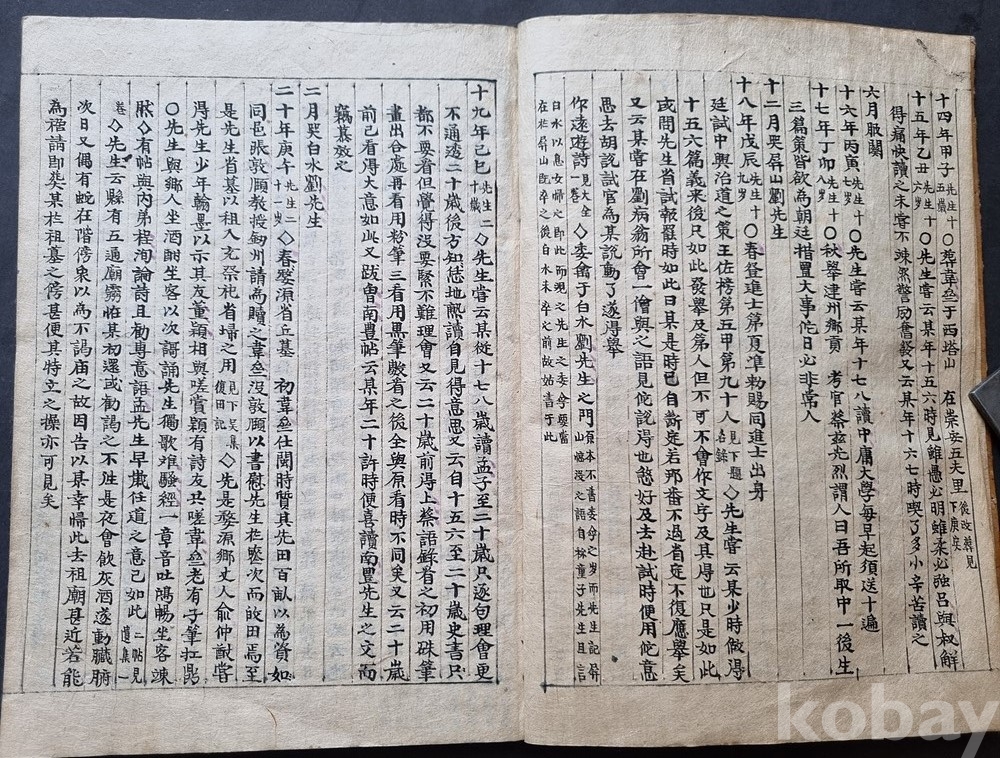 十四年甲子先生十五歲○葬韋齋于西塔山 在崇安五夫里後改葬見下庚寅
十五年乙丑先生十六歲○先生嘗云某年十五六時見雖愚必明雖柔必強呂與叔解
得痛快讀之未嘗不竦然警勵奮發又云某年十六七時喫了多小辛苦讀之
六月服闋
十六年丙寅先生十七歲○先生嘗云某年十七八讀中庸大學每早起須送十遍
十七年丁卯先生十八歲○秋舉建州鄉貢 考官蔡玆先烈謂人曰吾所取中一後生
三篇策皆欲為朝廷措置大事佗日必非常人
十二月哭屛山劉先生
十八年戊辰先生十九歲○春登進士第夏準勑賜同進士出身
廷試中興治道之策王佐榜第五甲第九十人見下題名錄◇先生嘗云某少時做得
十五六篇義來後只如此發舉及第人但不可不會作文字及其得也只是如此
或問先生省試報罷時如此曰某是時已自斷定若那番不過省定不復應舉矣
又云某嘗在劉病翁所會一僧與之語見佗說得也㦤好及去赴試時便用佗意
思去胡說試官為某說動了遂得舉
作遠遊詩見大全一卷◇委禽于白水劉先生之門原本不書委禽之歲而先生記屛山臨沒之語自稱童子先生且言
白水以息女婦之卽此而觀之先生之委禽要當在於屛山旣卒之後白水未卒之前故姑書于此
十九年己巳先生二十歲◇先生嘗云某從十七八歲讀孟子至二十歲只逐句理會更
不通透二十歲後方知恁地熟讀自見得意思又云自十五六至二十歲史書只
都不要看但覺得沒要緊不難理會又云二十歲前得上蔡語錄看之初用硃筆
畫出合處再看用粉筆三看用黑筆數看之後全與原看時不同矣又云二十歲
前已看得大意如此又跋曾南豊帖云某年二十許時便喜讀南豊先生之文而
竊慕效之
二月哭白水劉先生
二十年庚午先生二十一歲◇春婺源省丘墓 初韋齋仕閩時質其先田百畝以為資如
同邑張敦頤教授劒州請為贖之韋齋沒敦頤以書慰先生於喪次而皈田焉至
是先生省墓以租入充祭祀省埽之用見下吳集復田記◇先是婺源鄉丈人俞仲猷嘗
得先生少年翰墨以示其友董穎相與嗟賞穎有詩及共嗟韋齋老有子筆扛鼎
○先生與鄉人坐酒酣坐客以次謌誦先生獨歌離騷經一章音吐鴻暢坐客竦
肰◇有帖與內弟程洵論詩且勸專意語孟先生早歲任道之意已如此二帖見遺集一
卷◇先生云縣有五通廟靈怪某初還或勸謁之不徃是夜會飮灰酒遂動臟腑
次日又偶有蛇在階傍衆以為不謁庙之故因告以某幸歸此去祖廟甚近若能
為禍請即葬某於祖墓之傍甚便其特立之操亦可見矣
kobay